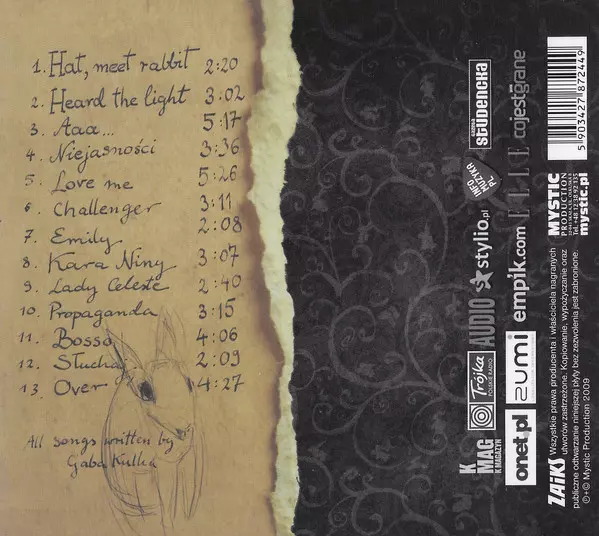 1. Hat, meet rabbit 2:20
2. Heard the light 3:02
3. Aaa... 5:17
4. Niejasności 3:36
5. Love me 5:26
6. Challenger 3:11
7. Emily 2:08
8. Kara Niny 3:07
9. Lady Celeste 2:40
10. Propaganda 3:15
11. Bosso 4:06
12. Słucha 2:09
13. Over 4:27
All songs written by
Gaba Kulka
STUDENCKA
cojestgrane
INFO
MUZYKA
PL
ELLE
stylio.pl
AUDIO
empik.com
Trójka
POLSKIE RADIO
zumi
K
MAG
K MAGAZYN
onet.pl
5 903427 872449
MYSTIC
PRODUCTION
mystic.pl
ZAiKS Wszystkie prawa producenta i właściciela nagranych
utworów zastrzeżone. Kopiowanie, wypożyczanie oraz
publiczne odtwarzanie niniejszej płyty bez zezwolenia jest zabronione.
℗+© Mystic Production 2009